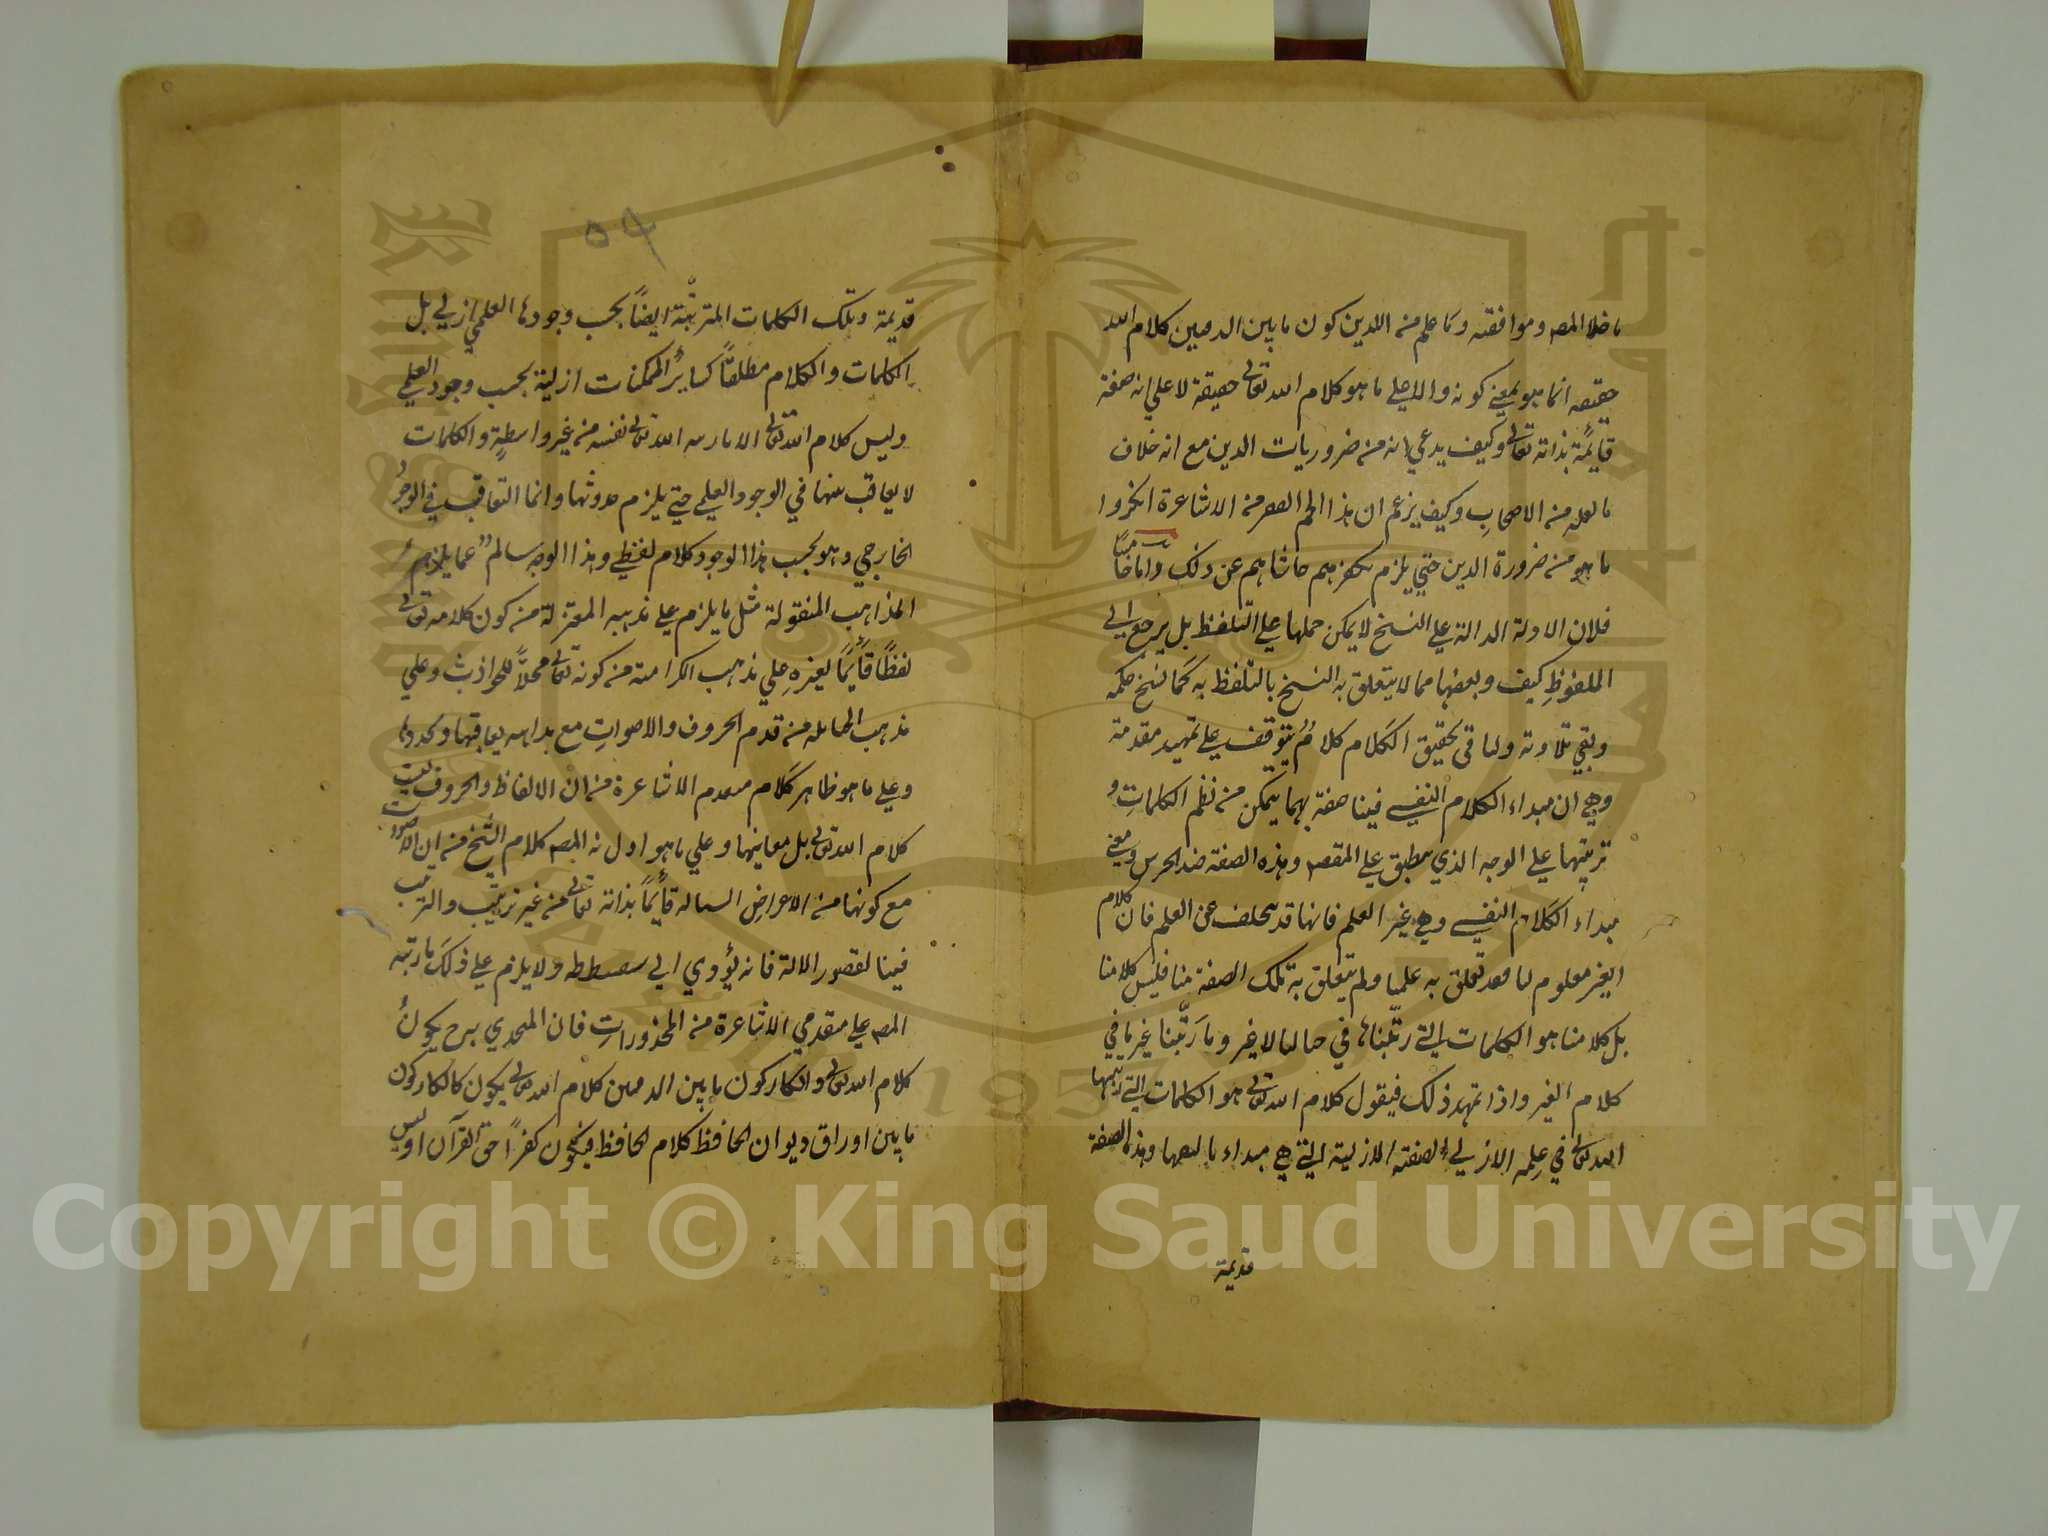 ما خلا المصـ وموافقته وما علم منه الدين كون ما بين الدفتين كلام الله
حقيقة انما هو بمعني كونه دالا علي ما هو كلام الله تعالي حقيقة لا علي انه صفة
قايمة بذاته تعالي وكيف يدعي انه منه ضروريات الدين مع انه خلاف
ما نقله منه الاصحاب وكيف يزعم ان هذا الجم الغفير منه الاشاعرة انكروا
ما هو منه ضرورة الدين حتي يلزم تكفيرهم حاشاهم عن ذلك واما
فلان الادلة الدالة علي النسخ لا يمكن حملها علي التلفظ بل يرجع الي
الملفوظ كيف وبعضها مما لا يتعلق به النسخ بالتلفظ به كما نسخ حكمه
وبقي تلاوته ولنا في تحقيق الكلام كلام يتوقف علي تمهيد مقدمة
وهي ان مبداء الكلام النفسي فينا صفة بها يتمكن منه نظم الكلمات و
ترتيبها علي الوجه الذي ينطبق علي المقصـ وهذه الصفة ضد الخرس وهي
مبداء الكلام النفسي وهي غير العلم فانها قد تتخلف عن العلم فان كلام
الغير معلوم لنا وقد تعلق به علمنا ولم يتعلق به تلك الصفة منا فليس كلامنا
بل كلامنا هو الكلمات التي رتبناها في خيالنا لا غير وما رتبنا غير ما في
كلام الغير واذا تمهد ذلك فيقول كلام الله تعالي هو الكلمات التي رتبها
الله تعالي في علمه الازلي لصفته الازلية التي هي مبداء تاليفها وهذه الصفة
قديمة
٥٩
قديمة وتلك الكلمات المترتبة ايضاً بحسب وجودها العلمي ازلي بل
الكلمات والكلام مطلقاً كساير الممكنات ازلية بحسب وجود العلمي
وليس كلام الله تعالي الا ما رتبه الله تعالي نفسه منه غير واسطة والكلمات
لا تعاقب بينها في الوجود العلمي حتي يلزم حدوثها وانما التعاقب في الوجود
الخارجي وهو بحسب هذا الوجود كلام لفظي وهذا الوجه سالم عما يلزم
المذاهب المنقولة مثل ما يلزم علي مذهب المعتزلة منه كون كلامه تعالي
لفظاً قايماً بغيره علي مذهب الكرامية منه كونه تعالي محلاً للحوادث وعلي
مذهب الحنابله منه قدم الحروف والاصوات مع بداهه تعاقبها وتجددها
وعلي ما هو ظاهر كلام متقدم الاشاعرة منه ان الالفاظ والحروف ليست
كلام الله تعالي بل معانيها وعلي ما هو اول به المصـ كلام الشيخ منه ان الاصوات
مع كونها منه الاعراض السياله قايماً بذاته تعالي منه غير ترتيب والترتيب
فينا لقصور الالة فانه يؤدي الي سفسطه ولا يلزم علي ذلك ما رتبه
المصـ علي متقدمي الاشاعرة منه المحذورات فان المتحدي به ح يكون
كلام الله تعالي وانكار كون ما بين الدفتين كلام الله تعالي يكون كانكار كون
ما بين اوراق ديوان الحافظ كلام الحافظ فيكون كفراً في حق القرآن اوليس
Copyright © King Saud University
1957